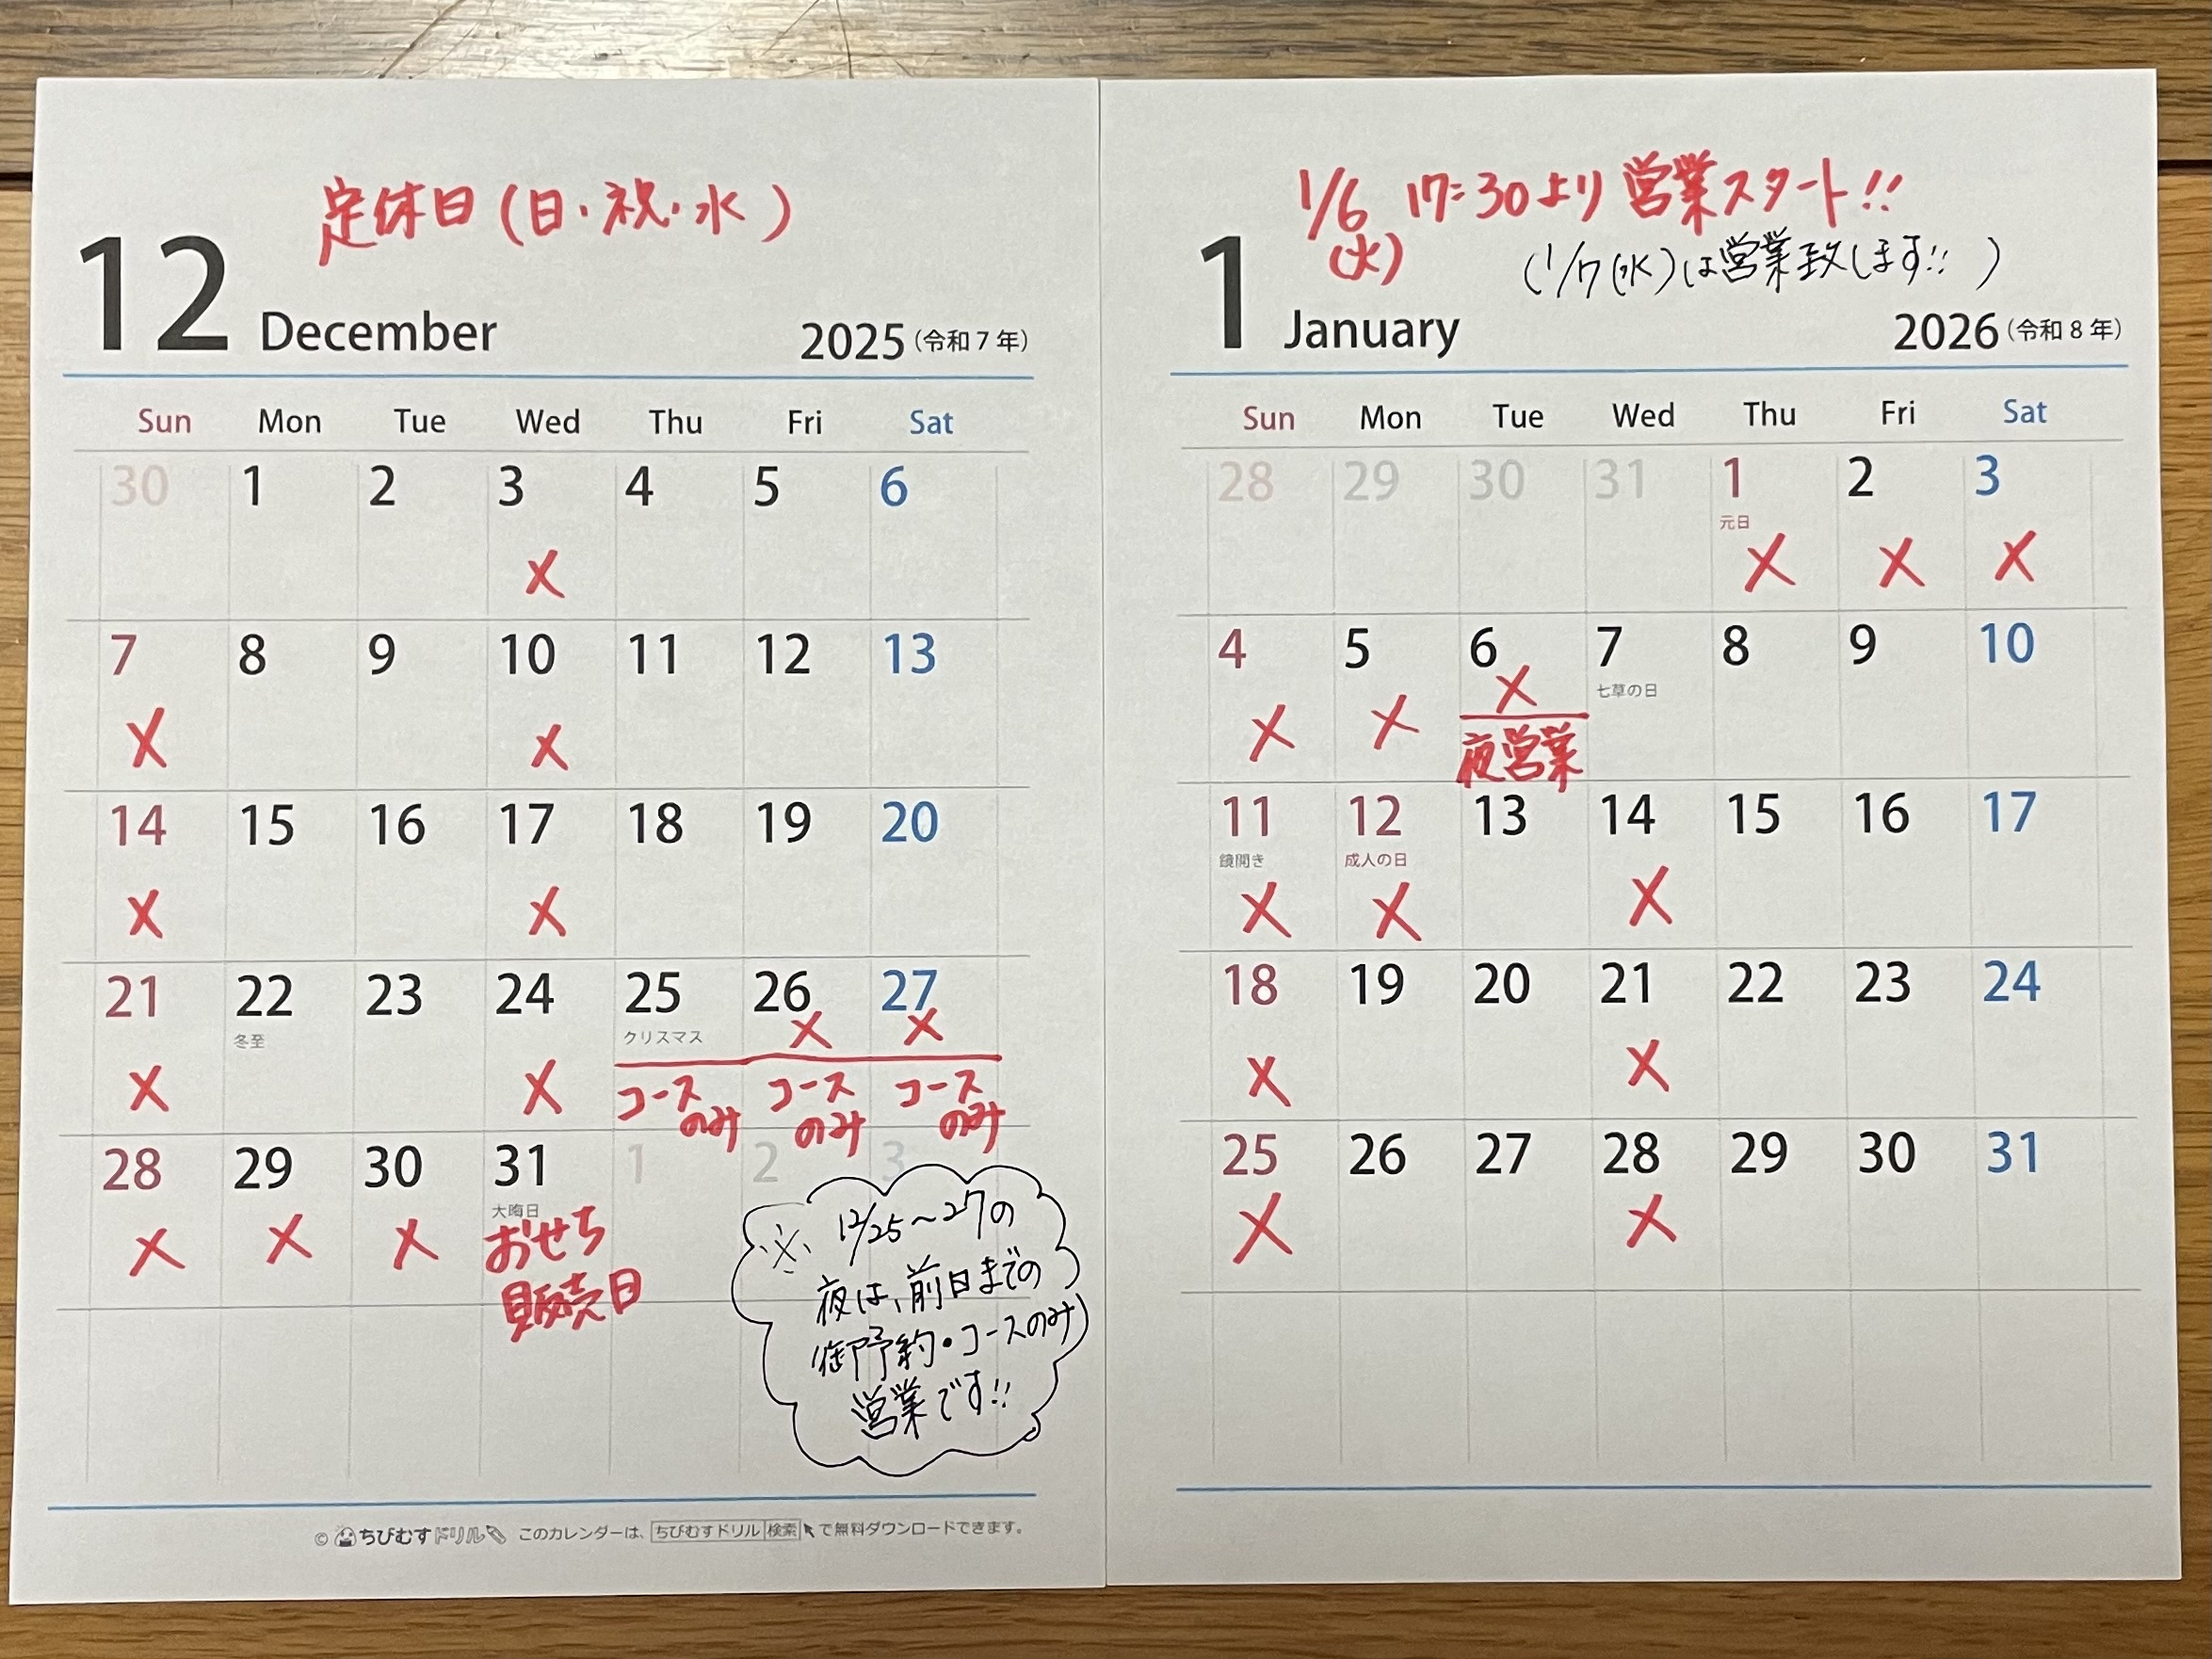 定休日(日・祝・水)
12 December 2025(令和7年)
Sun Mon Tue Wed Thu Fri Sat
30 1 2 3 4 5 6
×
7 8 9 10 11 12 13
× ×
14 15 16 17 18 19 20
× ×
21 22 23 24 25 26 27
冬至 クリスマス
× ×
× ×
コースのみ コースのみ コースのみ
28 29 30 31 1 2 3
大晦日
× × × おせち
販売日
※12/25〜27の
夜は、前日までの
御予約・コースのみ
営業です!!
© ちびむすドリル このカレンダーは、ちびむすドリル 検索 で無料ダウンロードできます。
1/6 17:30より営業スタート!!
(火)
(1/7(水)は営業致します!! )
1 January 2026(令和8年)
Sun Mon Tue Wed Thu Fri Sat
28 29 30 31 1 2 3
元日
× × ×
4 5 6 7 8 9 10
七草の日
× × ×
夜営業
11 12 13 14 15 16 17
鏡開き 成人の日
× × ×
18 19 20 21 22 23 24
× ×
25 26 27 28 29 30 31
× ×